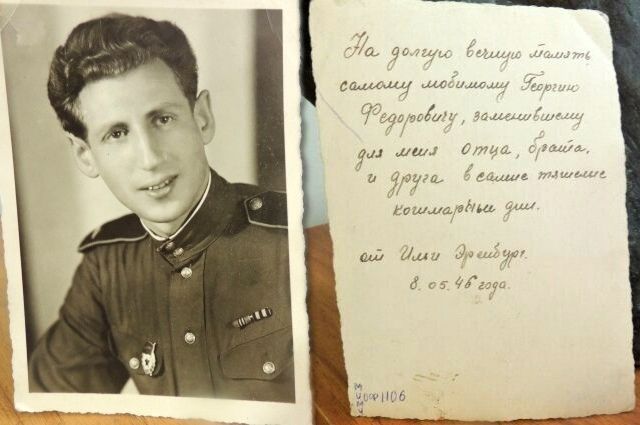 На долгую вечную память
самому любимому Георгию
Федоровичу, заменившему
для меня отца, брата.
и друга в самые тяжелые
кошмарные дни.
от Ильи Эренбург.
8.05.46 года.
1106